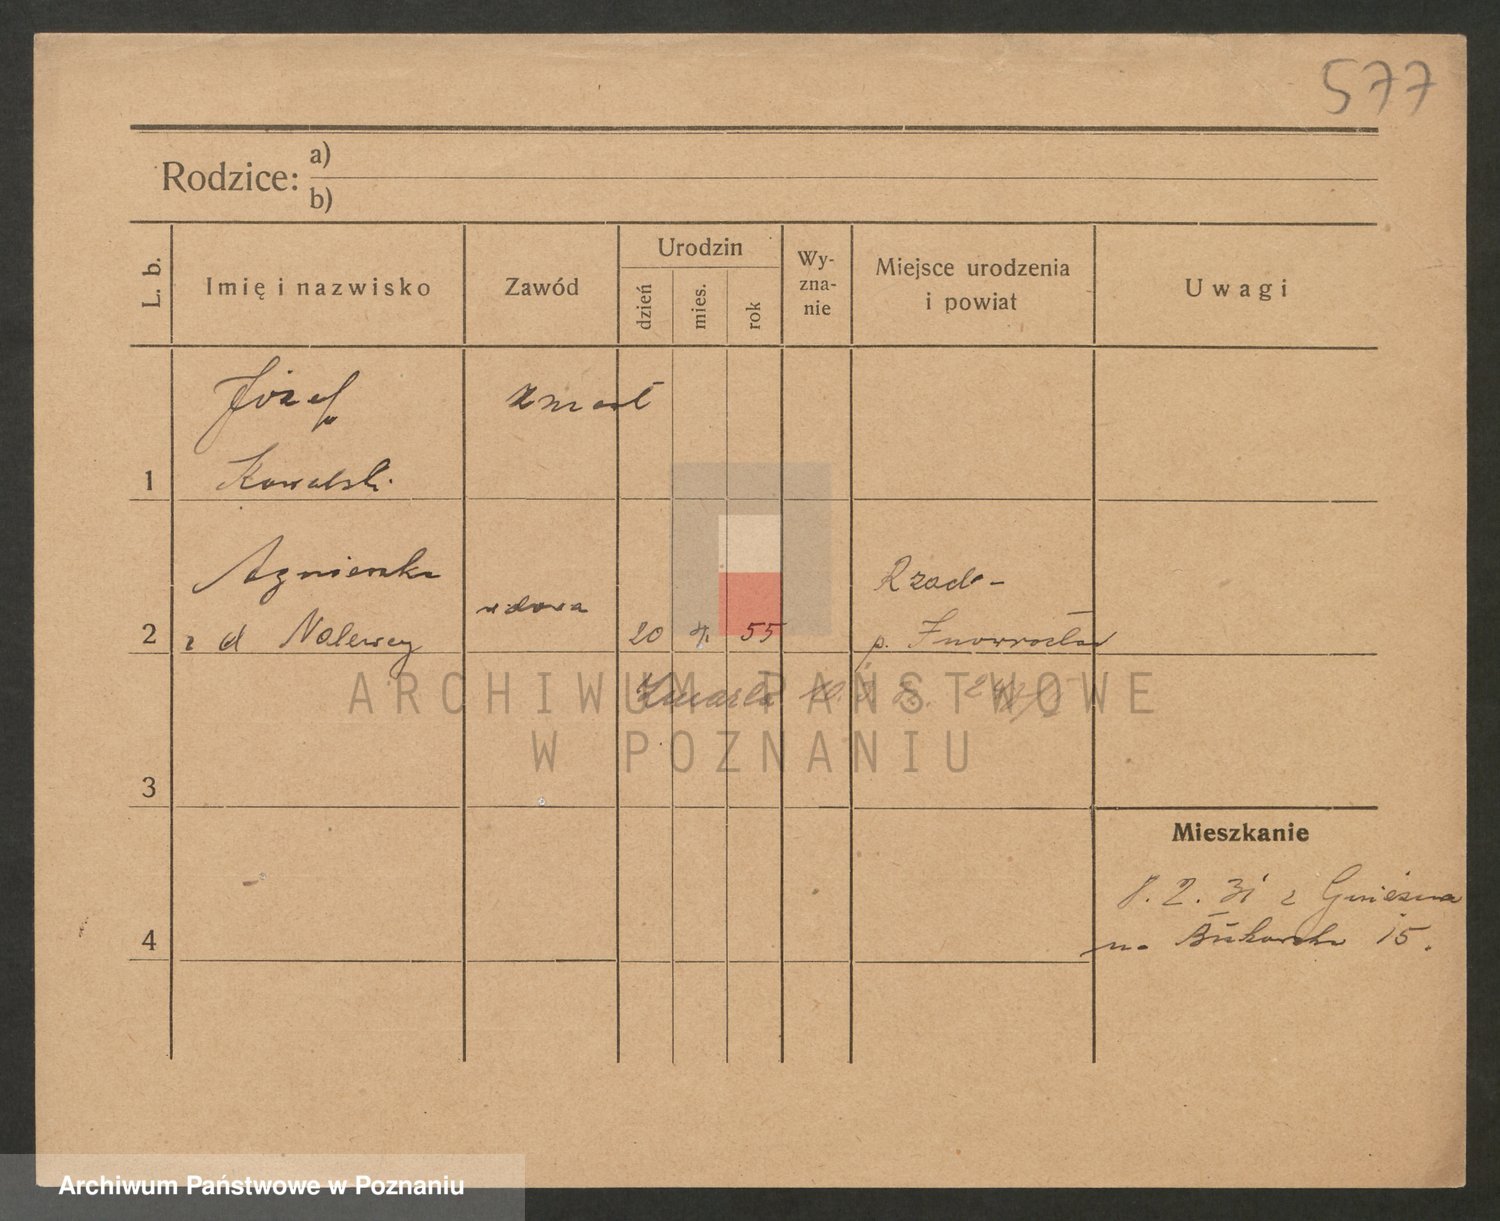 577
Rodzice: a)
b)
L. b.
Imię i nazwisko
Zawód
Urodzin
dzień
mies.
rok
Wy-
zna-
nie
Miejsce urodzenia
i powiat
Uwagi
1
Józef
Kowalski
zmarł
2
Agnieszka
z d Nalewey
wdowa
20 4. 55
p. Inowrocław
Zmarła
3
4
Mieszkanie
8. 2. 31 z Gniezna
na Bukowska 15.
ARCHIWUM PAŃSTWOWE
W POZNANIU
Archiwum Państwowe w Poznaniu